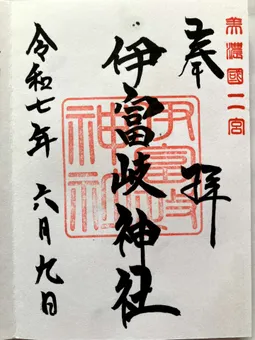 美濃國二宮
奉拝
伊富岐神社
伊富岐神社
令和七年 六月九日